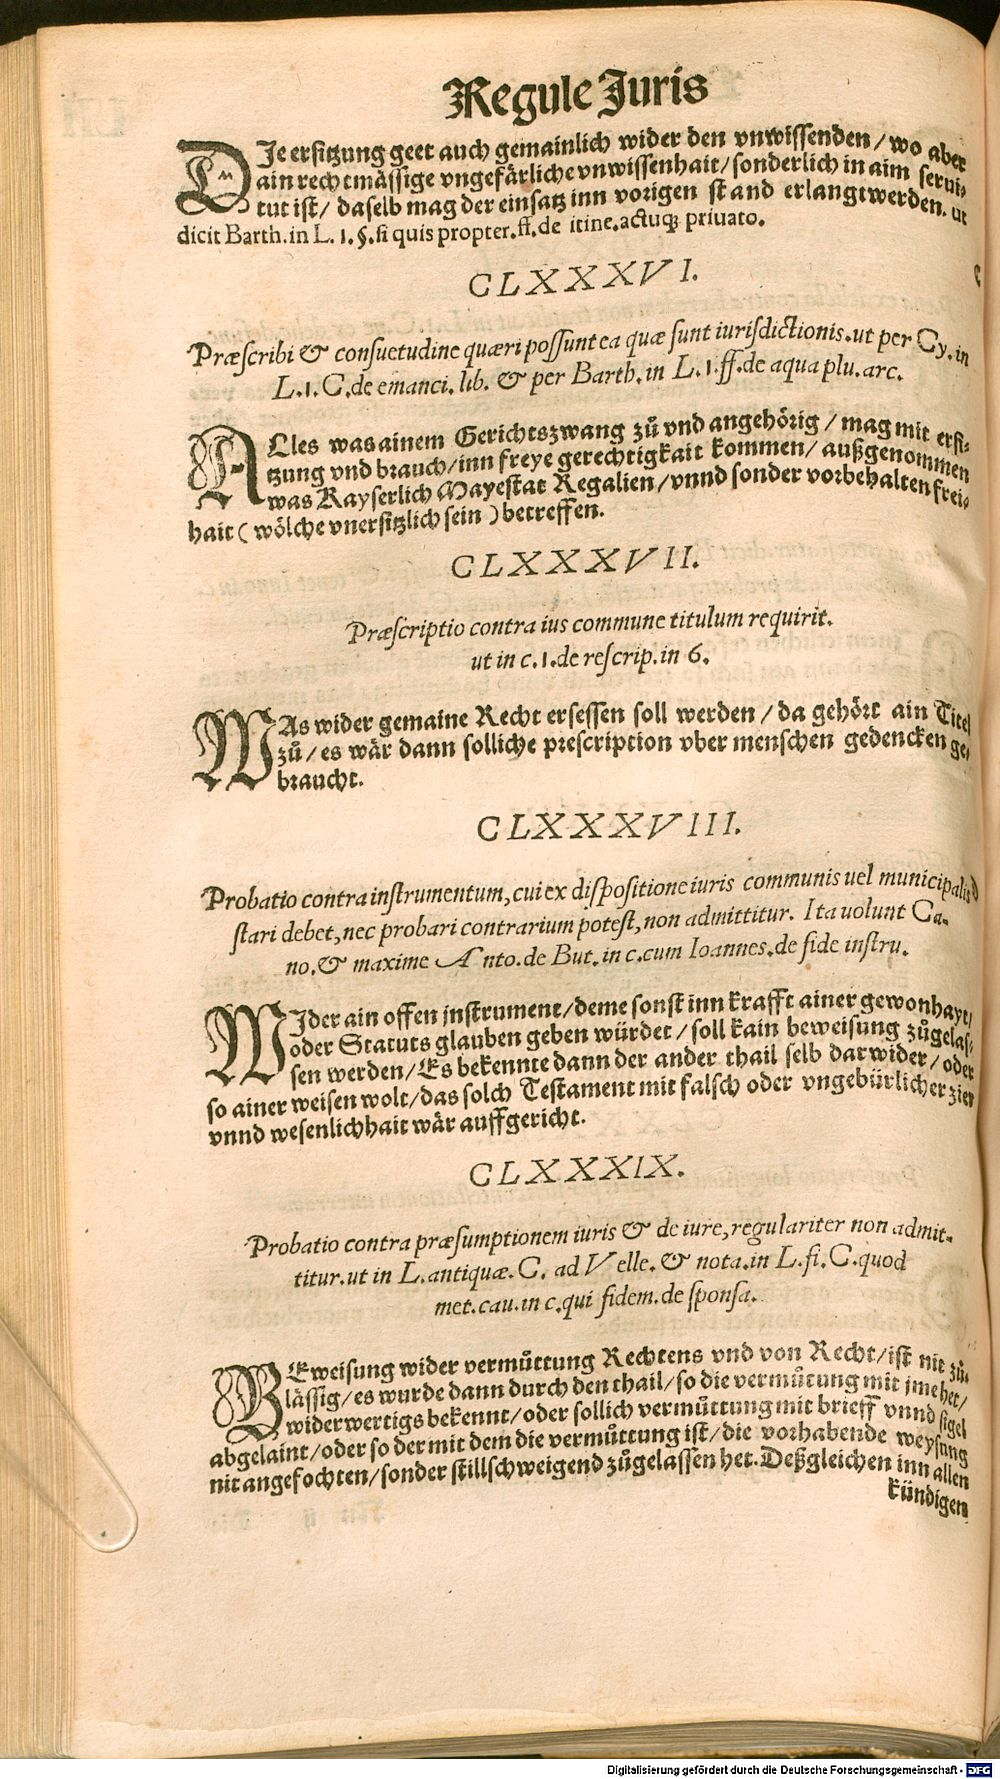 Regule Juris
DJe ersitzung geet auch gemainlich wider den vnwissenden / wo aber
ain rechtmässige vngefärliche vnwissenhait / sonderlich in aim serui-
tut ist / daselb mag der einsatz inn vorigen stand erlangt werden. ut
dicit Barth. in L. 1. §. si quis propter. ff. de itine. actuq; priuato.
CLXXXVI.
Præscribi & consuetudine quæri possunt ea quæ sunt iurisdictionis. ut per Cy. in
L. 1. C. de emanci. lib. & per Barth. in L. 1. ff. de aqua plu. arc.
ALles was ainem Gerichtszwang zů vnd angehörig / mag mit ersi-
tzung vnd brauch / inn freye gerechtigkait kommen / außgenommen
was Kayserlich Mayestat Regalien / vnnd sonder vorbehalten frei-
hait ( wölche vnersitzlich sein ) betreffen.
CLXXXVII.
Præscriptio contra ius commune titulum requirit.
ut in c. 1. de rescrip. in 6.
WAs wider gemaine Recht ersessen soll werden / da gehört ain Titel
zů / es wär dann solliche prescription vber menschen gedencken ge-
braucht.
CLXXXVIII.
Probatio contra instrumentum, cui ex dispositione iuris communis uel municipalis
stari debet, nec probari contrarium potest, non admittitur. Ita uolunt Ca-
no. & maxime Anto. de But. in c. cum Ioannes. de fide instru.
WJder ain offen jnstrument / deme sonst inn krafft ainer gewonhayt /
oder Statuts glauben geben würdet / soll kain beweisung zůgelas-
sen werden / Es bekennte dann der ander thail selb darwider / oder
so ainer weisen wolt / das solch Testament mit falsch oder vngebürlicher zier
vnnd wesenlichhait wär auffgericht.
CLXXXIX.
Probatio contra præsumptionem iuris & de iure, regulariter non admit-
titur. ut in L. antiquæ. C. ad Velle. & nota. in L. fi. C. quod
met. cau. in c. qui fidem. de sponsa.
BEweisung wider vermůttung Rechtens vnd von Recht / ist nit zů-
lässig / es wurde dann durch den thail / so die vermůtung mit jme het /
widerwertigs bekennt / oder sollich vermůttung mit brieff vnnd sigel
abgelaint / oder so der mit dem die vermůttung ist / die vorhabende weysung
nit angefochten / sonder stillschweigend zůgelassen het. Deßgleichen inn allen
kündigen
Digitalisierung gefördert durch die Deutsche Forschungsgemeinschaft - DFG